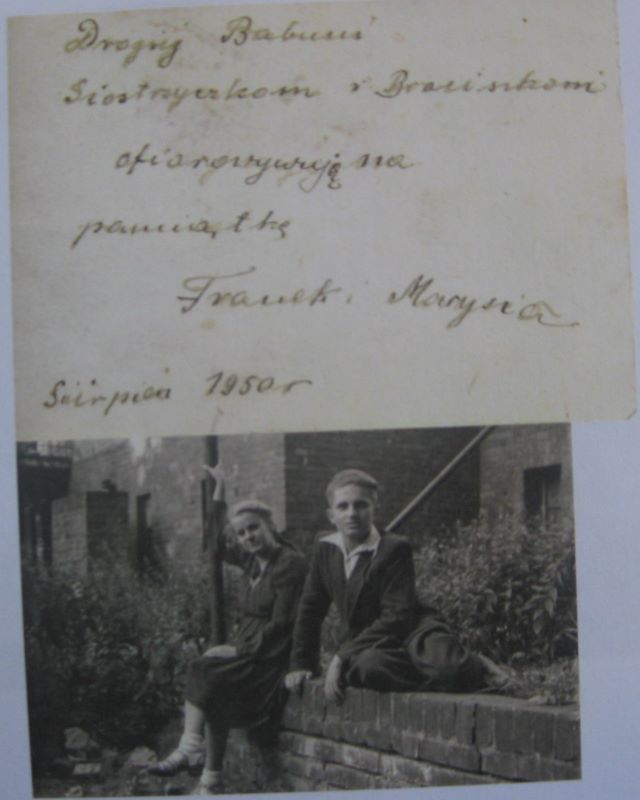 Drogiej Babusi
Siostrzyczkom i Braciszkomi
ofiarowywują na
pamiątkę
Franek i Marysia
Sierpień 1950r